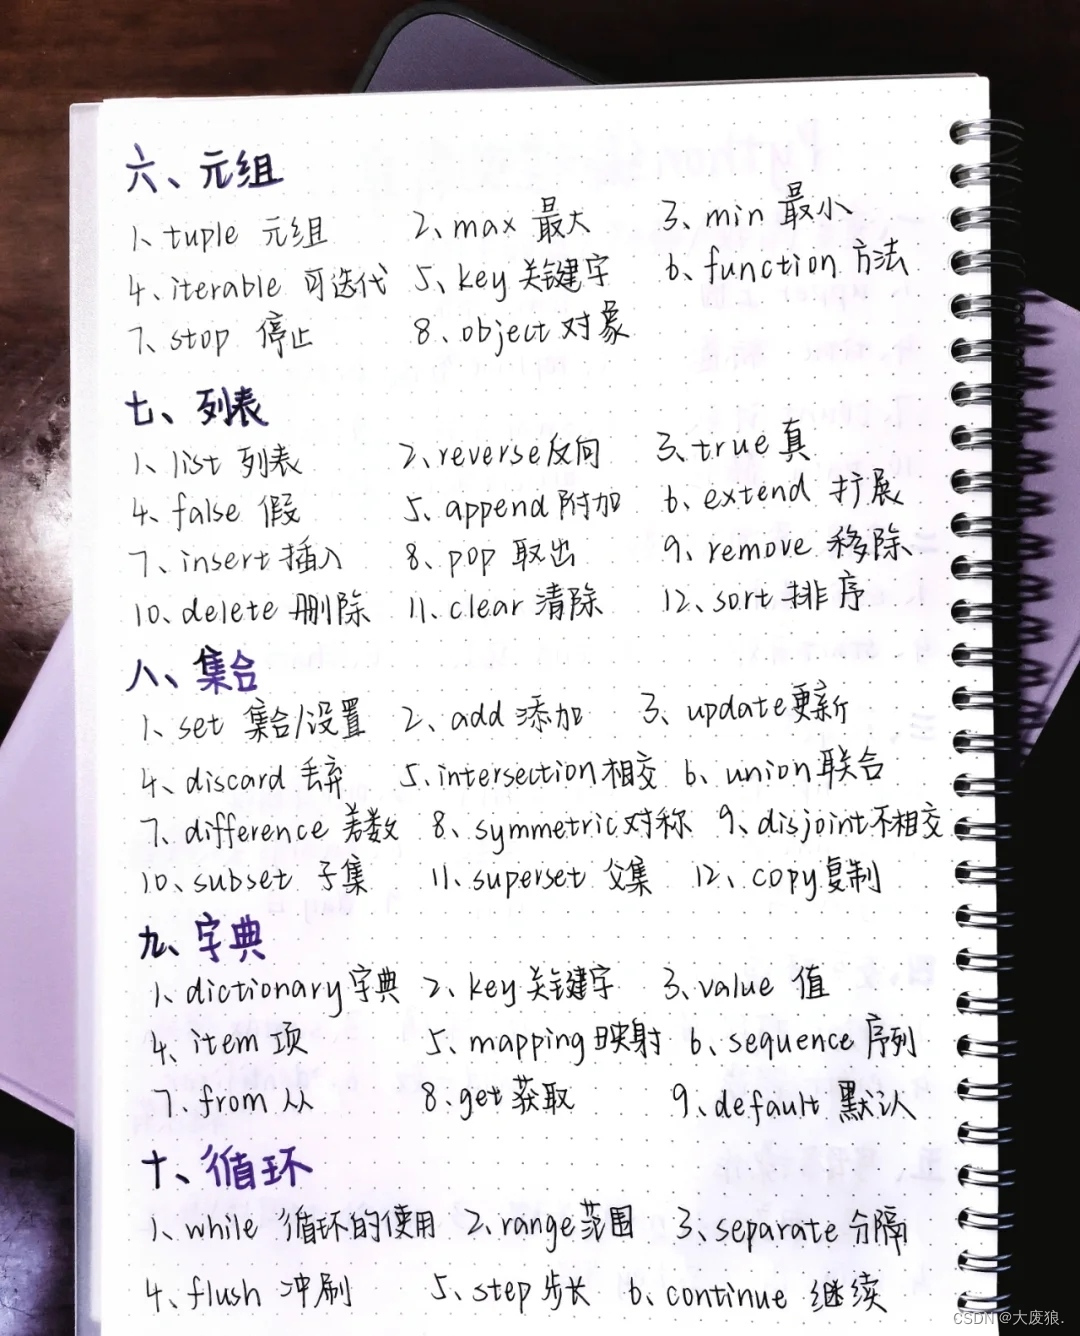 六、元组
1、tuple 元组 2、max 最大 3、min 最小
4、iterable 可迭代 5、key 关键字 6、function 方法
7、stop 停止 8、object 对象
七、列表
1、list 列表 2、reverse 反向 3、true 真
4、false 假 5、append 附加 6、extend 扩展
7、insert 插入 8、pop 取出 9、remove 移除
10、delete 删除 11、clear 清除 12、sort 排序
八、集合
1、set 集合/设置 2、add 添加 3、update 更新
4、discard 丢弃 5、intersection 相交 6、union 联合
7、difference 差数 8、symmetric 对称 9、disjoint 不相交
10、subset 子集 11、superset 父集 12、copy 复制
九、字典
1、dictionary 字典 2、key 关键字 3、value 值
4、item 项 5、mapping 映射 6、sequence 序列
7、from 从 8、get 获取 9、default 默认
十、循环
1、while 循环的使用 2、range 范围 3、separate 分隔
4、flush 冲刷 5、step 步长 6、continue 继续
CSDN @大废狼.